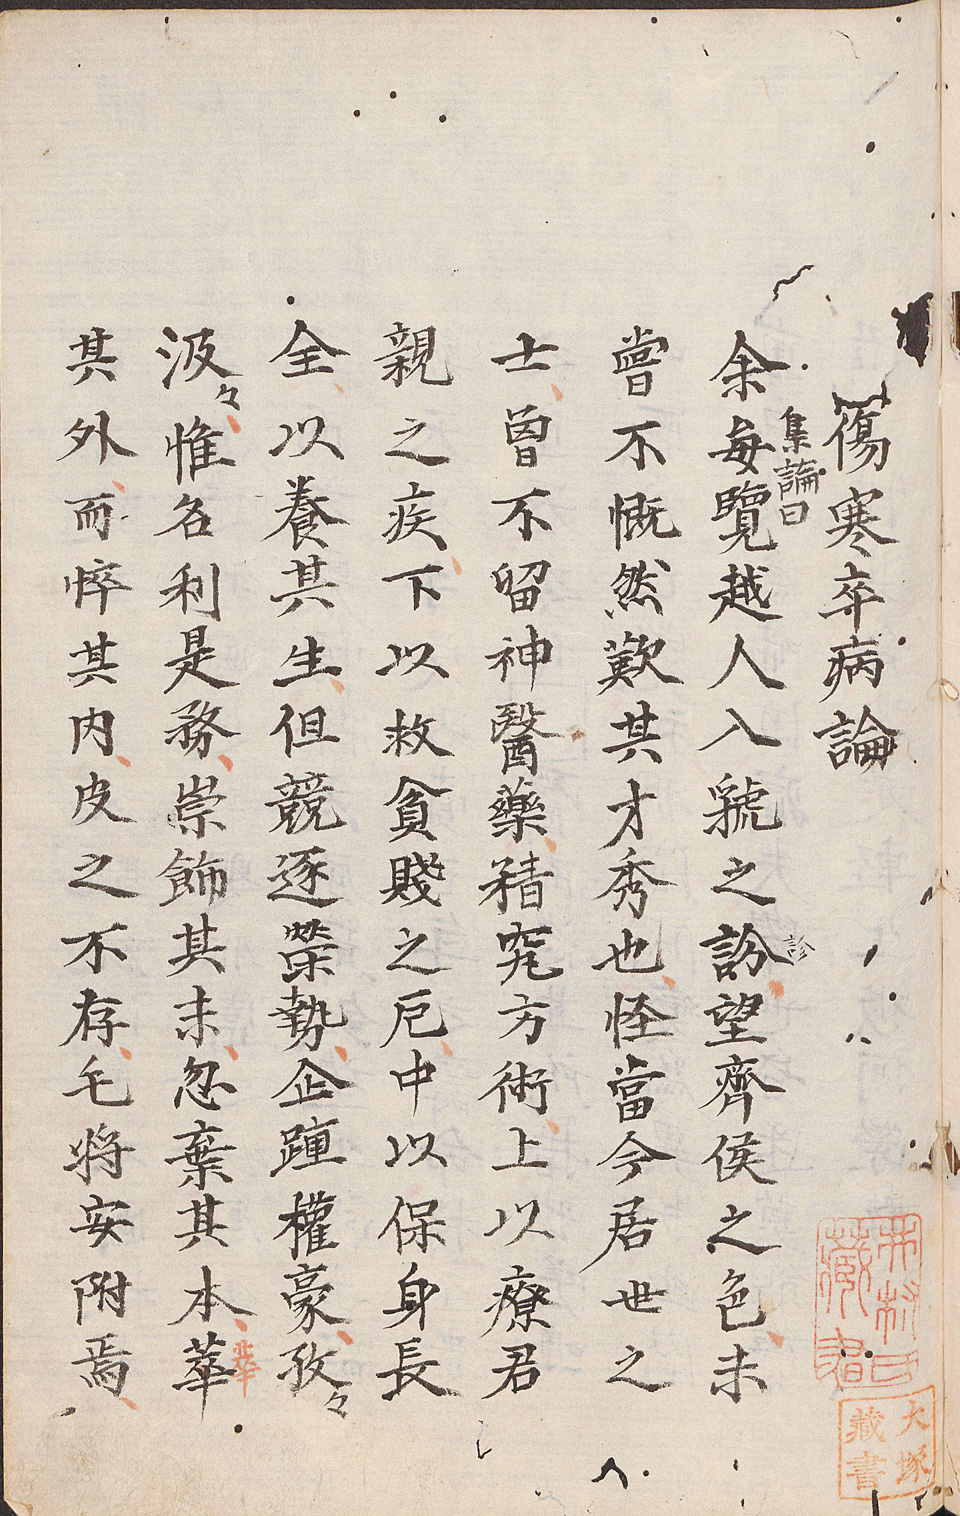 傷寒卒病論
集論曰
余每覽越人入虢之診望齊侯之色未
診
嘗不慨然歎其才秀也怪當今居世之
士曾不留神醫藥精究方術上以療君
親之疾下以救貧賤之厄中以保身長
全以養其生但競逐榮勢企踵權豪孜々
汲々惟名利是務崇飾其末忽棄其本華
華
其外而悴其内皮之不存毛将安附焉
井村氏
藏書
大塚
藏書